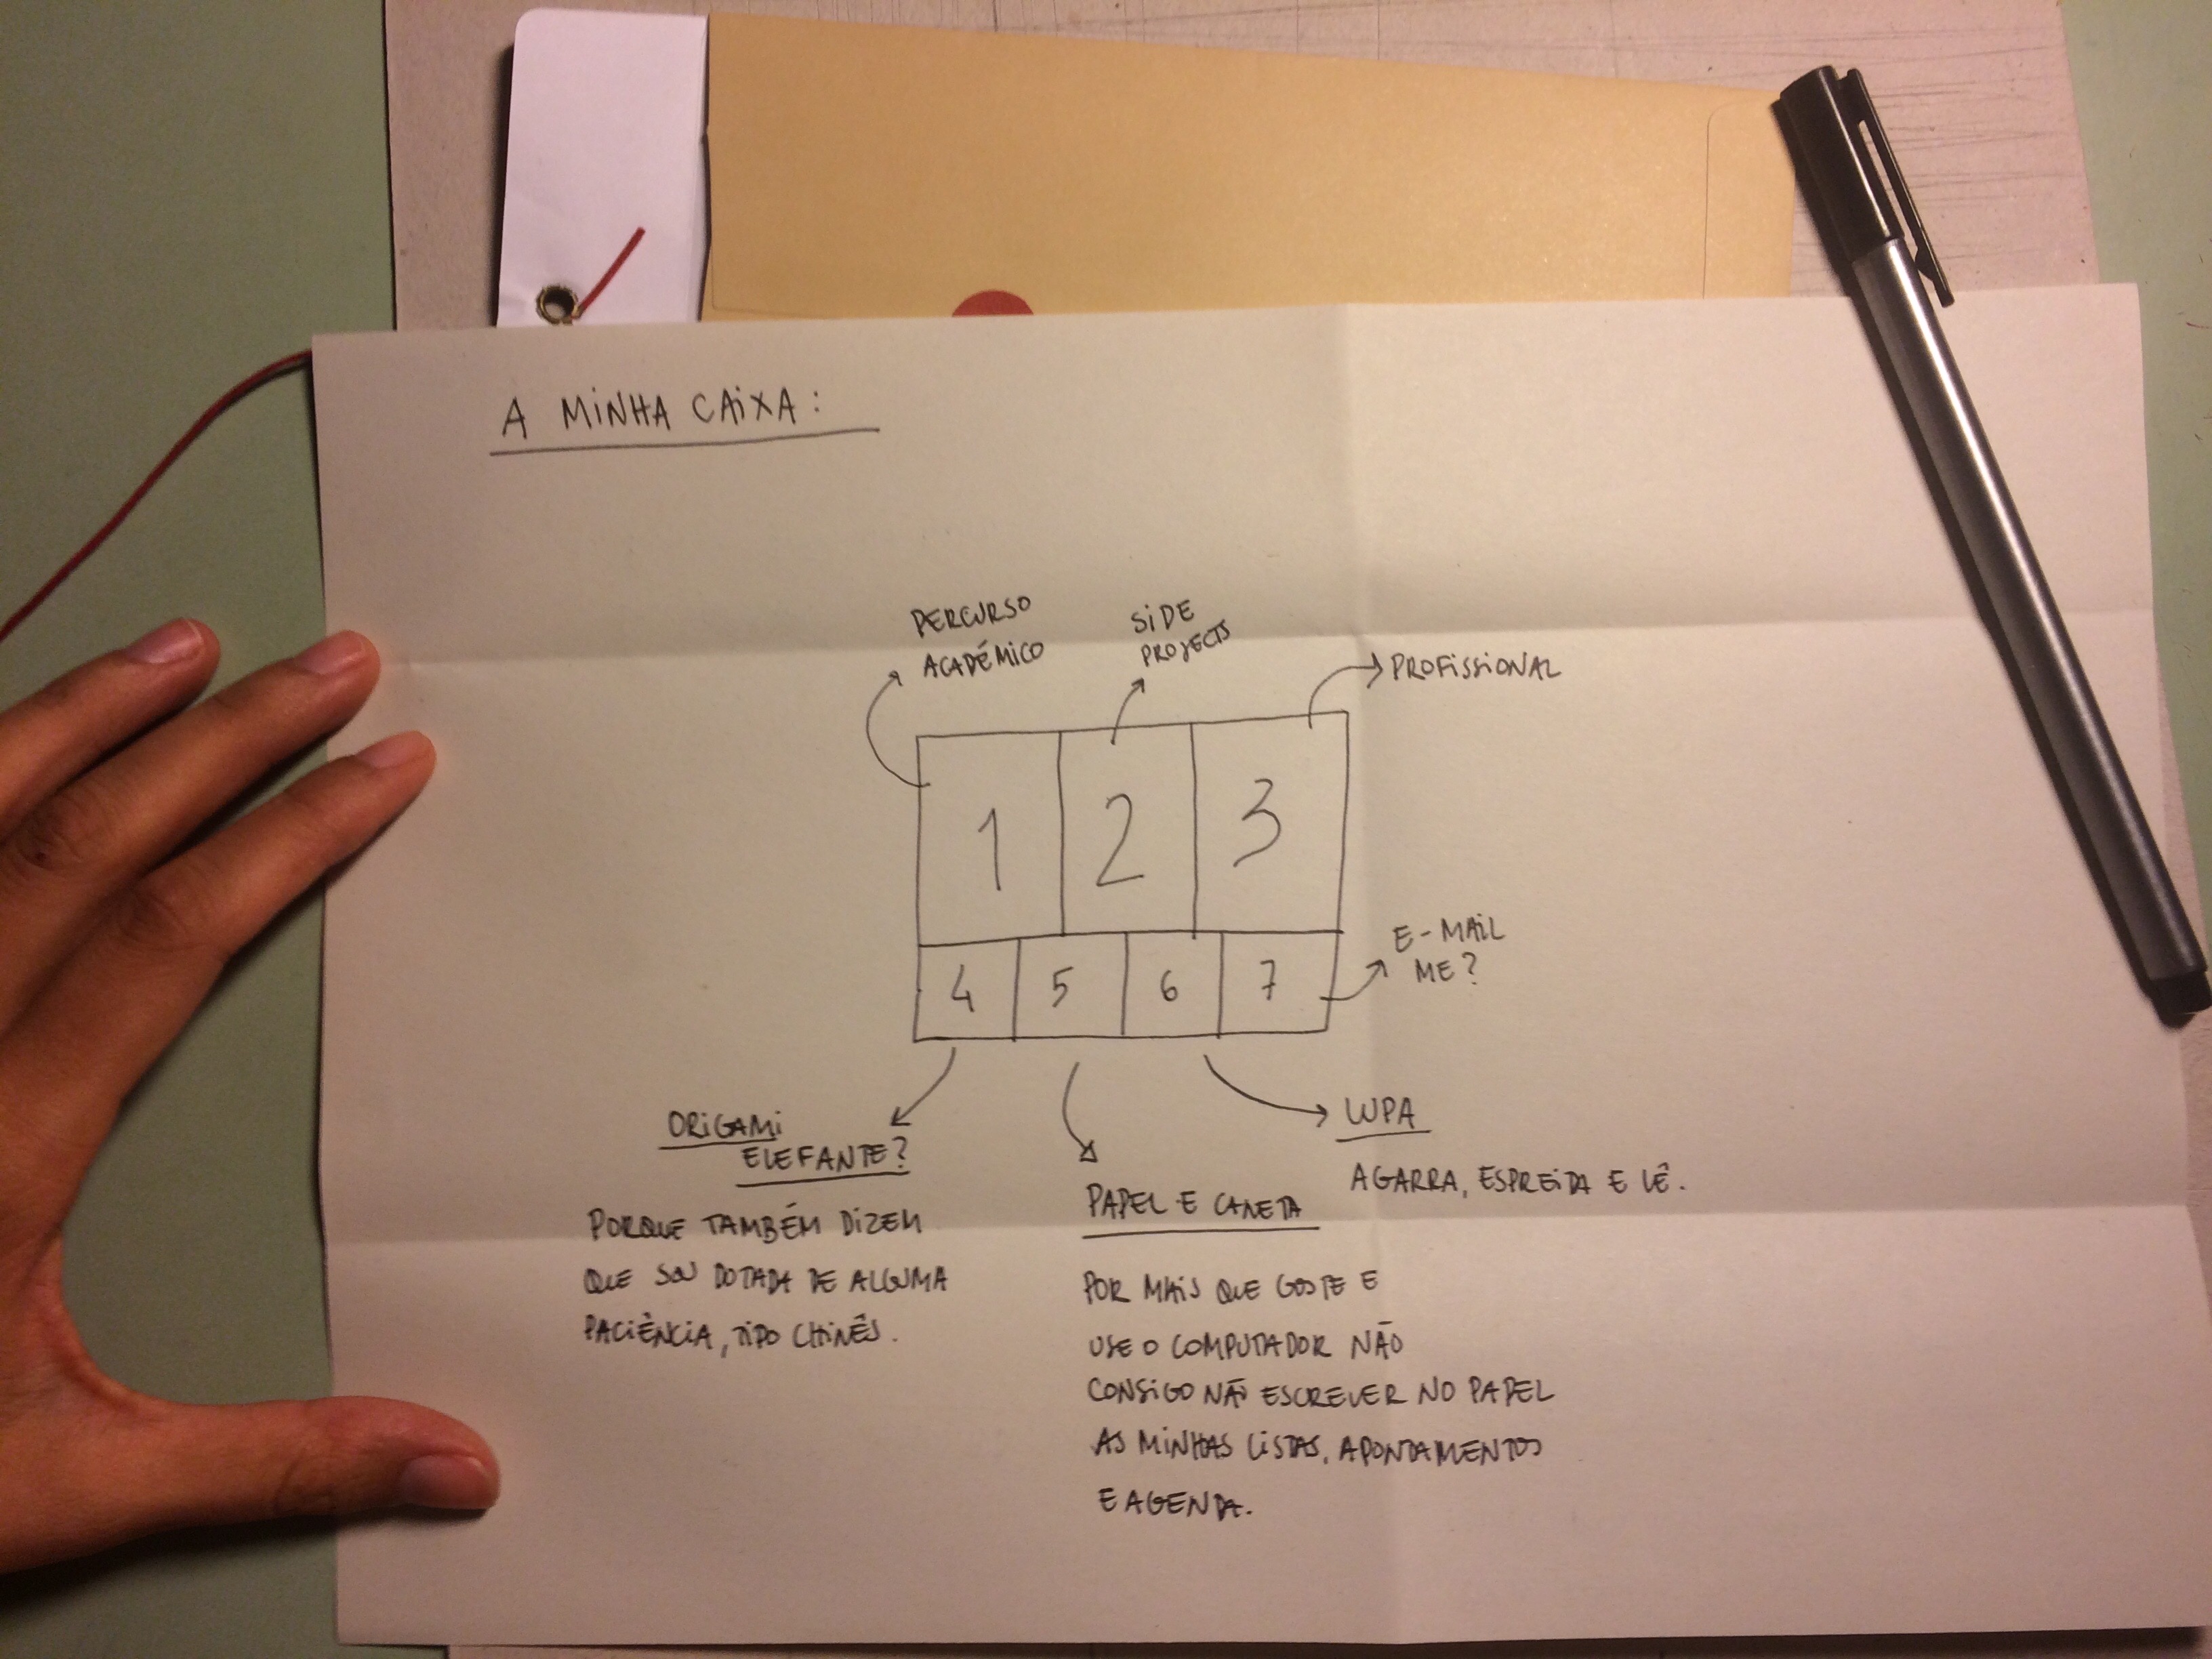 A MINHA CAIXA:
PERCURSO
ACADÉMICO
SIDE
PROJECTS
PROFISSIONAL
1 2 3
4 5 6 7
E-MAIL
ME?
ORIGAMI
ELEFANTE?
PORQUE TAMBÉM DIZEM
QUE SOU DOTADA DE ALGUMA
PACIÊNCIA, TIPO CHINÊS.
PAPEL E CANETA
POR MAIS QUE GOSTE E
USE O COMPUTADOR NÃO
CONSIGO NÃO ESCREVER NO PAPEL
AS MINHAS LISTAS, APONTAMENTOS
E AGENDA.
LUPA
AGARRA, ESPREITA E LÊ.